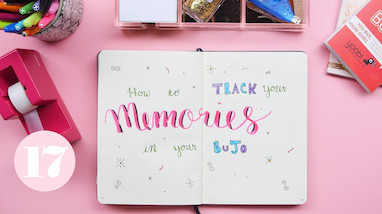 How to TRACK your
Memories
in your BuJo
17
yoobi